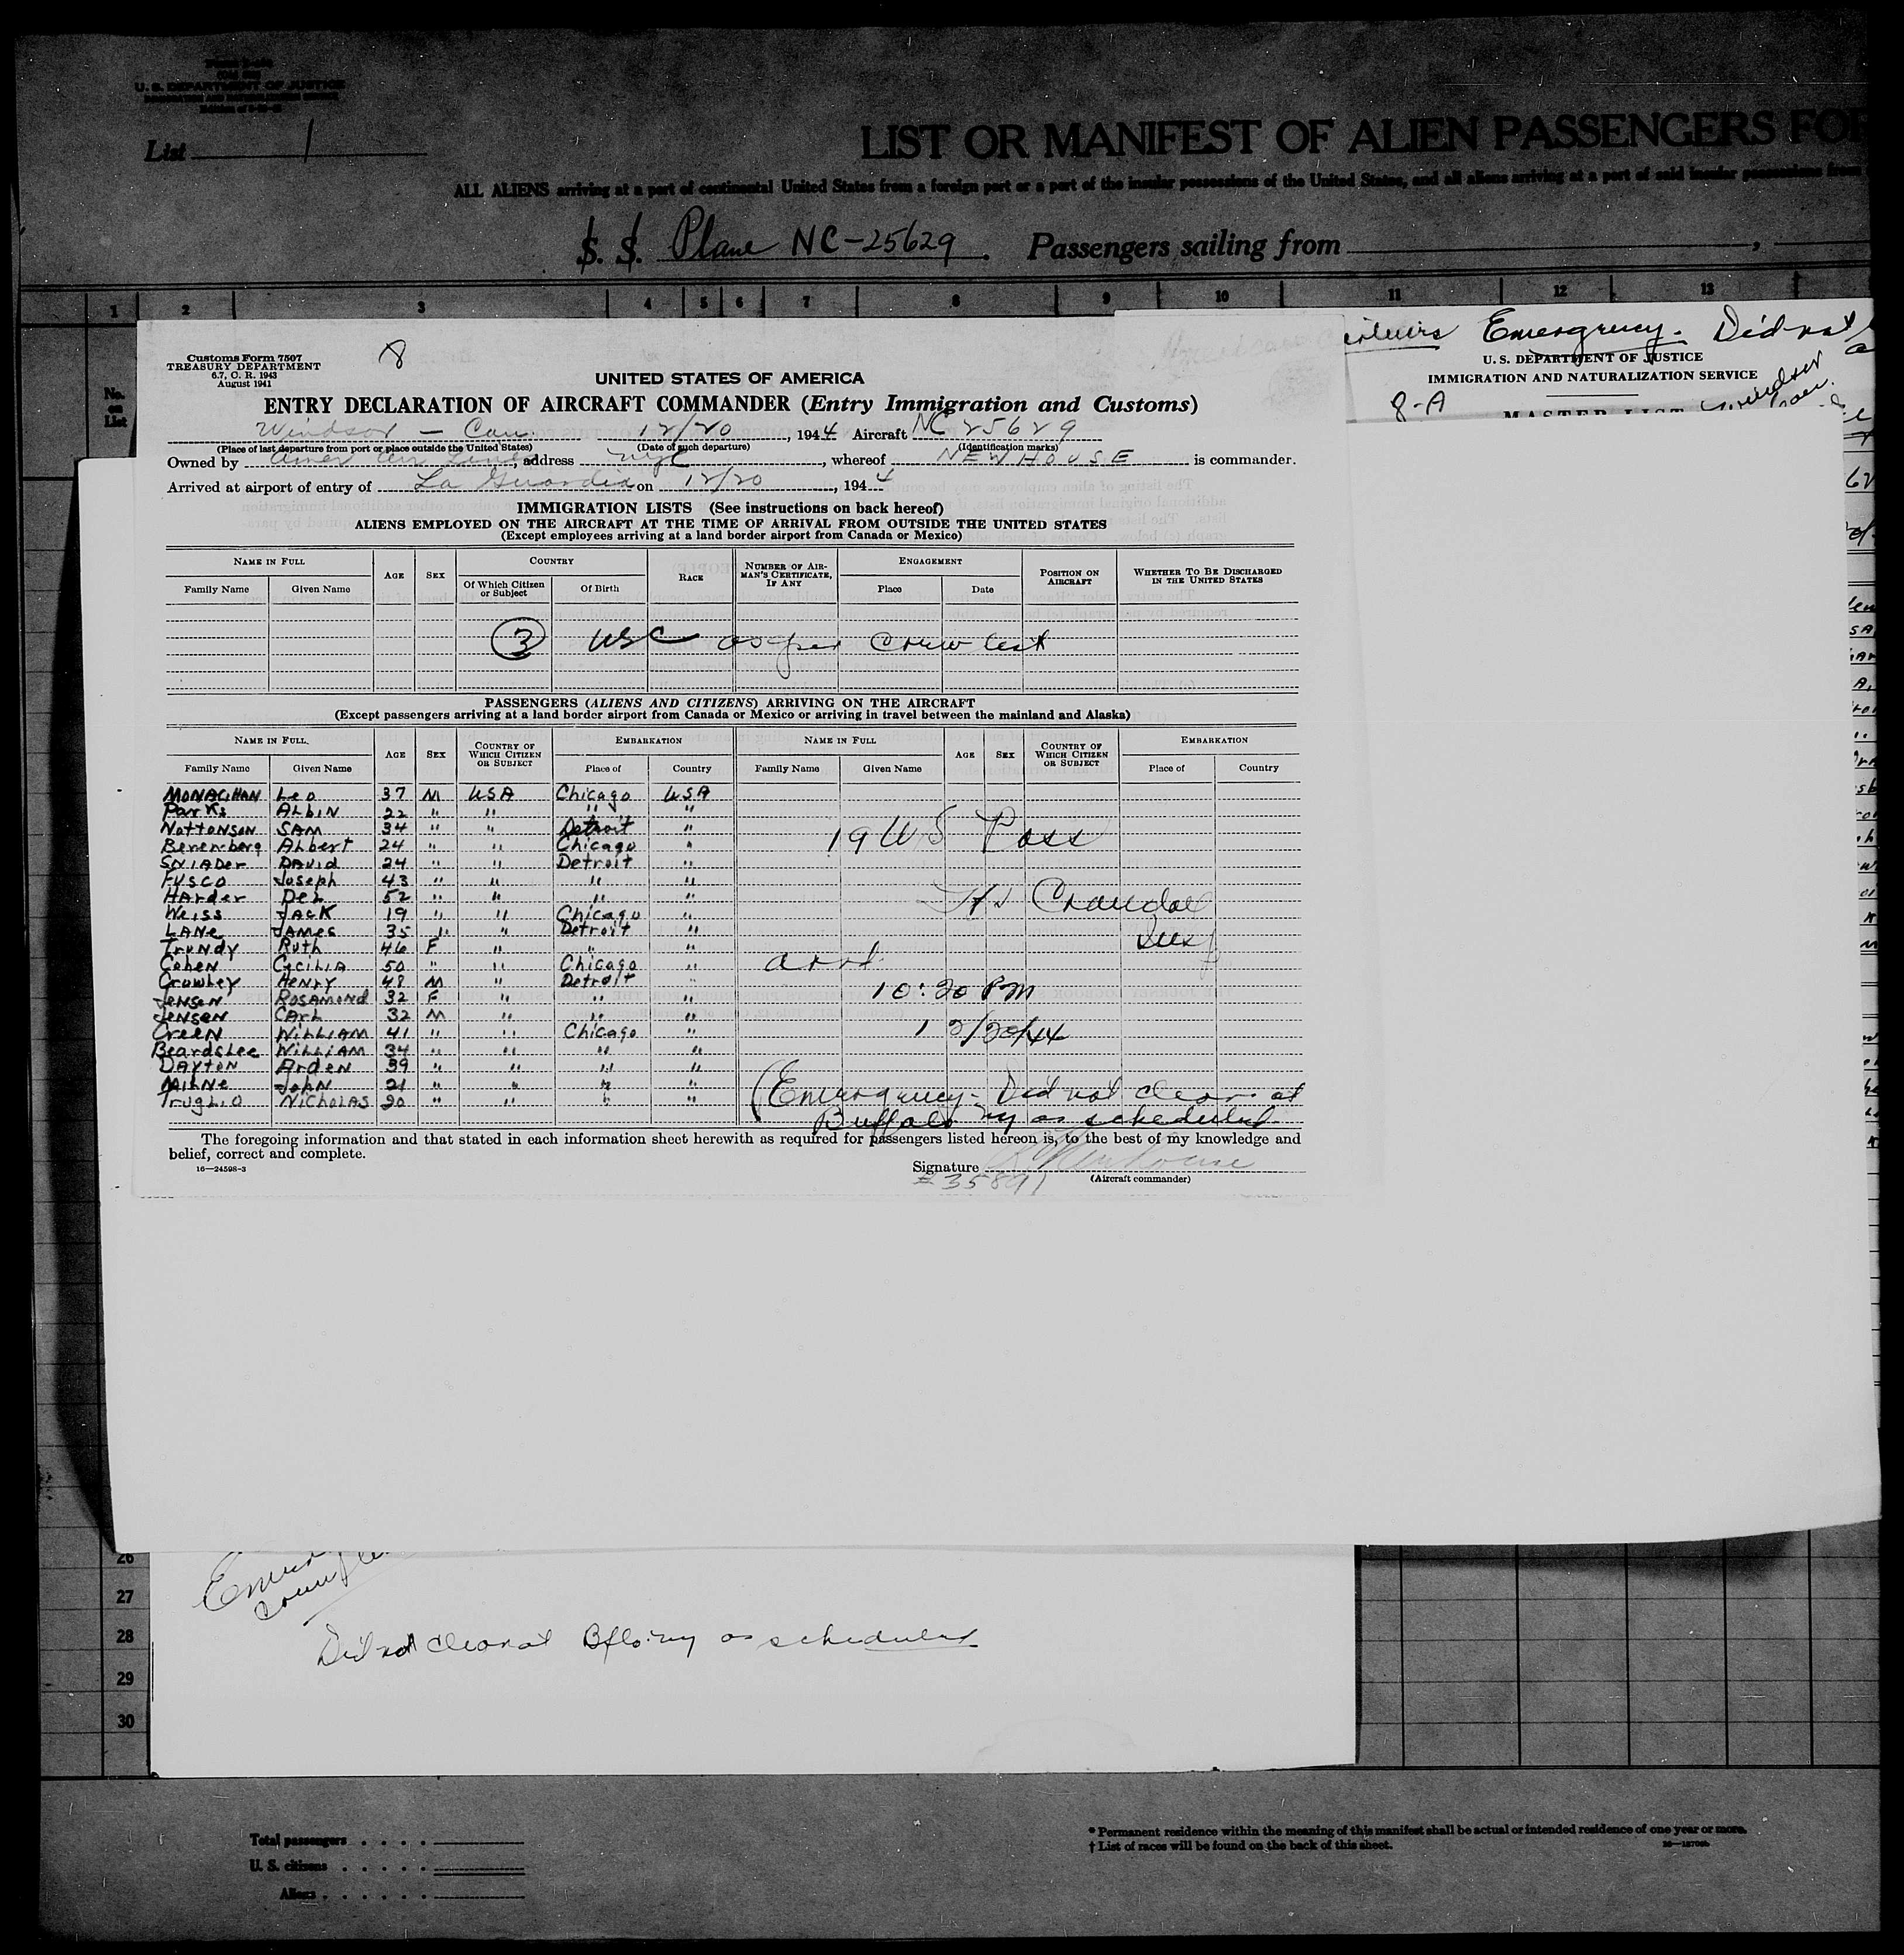 U. S. DEPARTMENT OF JUSTICE
List 1
LIST OR MANIFEST OF ALIEN PASSENGERS FOR
ALL ALIENS arriving at a port of continental United States from a foreign port or a port of the insular possessions of the United States, and all aliens arriving at a port of said insular possessions from
S. S. Plane NC-25629. Passengers sailing from
1 2 3 4 5 6 7 8 9 10 11 12 13
No. on List
Emergency. Did not
U. S. DEPARTMENT OF JUSTICE
IMMIGRATION AND NATURALIZATION SERVICE
8-A
MASTER LIST
Windsor
Customs Form 7507
TREASURY DEPARTMENT
6.7, C. R. 1943
August 1941
8
UNITED STATES OF AMERICA
ENTRY DECLARATION OF AIRCRAFT COMMANDER (Entry Immigration and Customs)
Windsor - Can. 12/20, 1944 Aircraft NC 25629
(Place of last departure from port or place outside the United States) (Date of such departure) (Identification marks)
Owned by Amer Air Lines, address NYC, whereof NEWHOUSE is commander.
Arrived at airport of entry of La Guardia on 12/20, 1944
IMMIGRATION LISTS (See instructions on back hereof)
ALIENS EMPLOYED ON THE AIRCRAFT AT THE TIME OF ARRIVAL FROM OUTSIDE THE UNITED STATES
(Except employees arriving at a land border airport from Canada or Mexico)
NAME IN FULL AGE SEX COUNTRY RACE NUMBER OF AIRMAN'S CERTIFICATE, IF ANY ENGAGEMENT POSITION ON AIRCRAFT WHETHER TO BE DISCHARGED IN THE UNITED STATES
Family Name Given Name Of Which Citizen or Subject Of Birth Place Date
3 USC as per Crew list
PASSENGERS (ALIENS AND CITIZENS) ARRIVING ON THE AIRCRAFT
(Except passengers arriving at a land border airport from Canada or Mexico or arriving in travel between the mainland and Alaska)
NAME IN FULL AGE SEX COUNTRY OF WHICH CITIZEN OR SUBJECT EMBARKATION NAME IN FULL AGE SEX COUNTRY OF WHICH CITIZEN OR SUBJECT EMBARKATION
Family Name Given Name Place of Country Family Name Given Name Place of Country
MONAGHAN Leo 37 M USA Chicago USA
Parks Albin 22 " " " "
Nottonson SAM 34 " " Detroit "
Berenberg Albert 24 " " Chicago "
SNIADer DAVID 24 " " Detroit "
FUSCO Joseph 43 " " " "
HArder Del 52 " " " "
Weiss JACK 19 " " Chicago "
LANe JAMes 35 " " Detroit "
Trundy Ruth 46 F " " "
Cohen Cecilia 50 " " Chicago "
Crowley HENRY 48 M " Detroit "
Jensen ROSAMOND 32 F " " "
Jensen CARL 32 M " " "
Green WILLIAM 41 " " Chicago "
Beardslee WILLIAM 34 " " " "
DAYTON Arden 39 " " " "
MILNe JohN 21 " " " "
Truglio NICHOLAS 20 " " " "
19 US Pass
Crandall
Insp
arrd
10:20 PM
12/20/44
(Emergency - Did not clear at
Buffalo NY as scheduled
The foregoing information and that stated in each information sheet herewith as required for passengers listed hereon is, to the best of my knowledge and
belief, correct and complete.
16—24598-3
Signature Newhouse
(Aircraft commander)
#35891
26
27
28
29
30
Did not clear at Bflo. ny as scheduled
Total passengers . . . .
U. S. citizens . . . . .
Aliens . . . . . .
* Permanent residence within the meaning of this manifest shall be actual or intended residence of one year or more.
† List of races will be found on the back of this sheet.